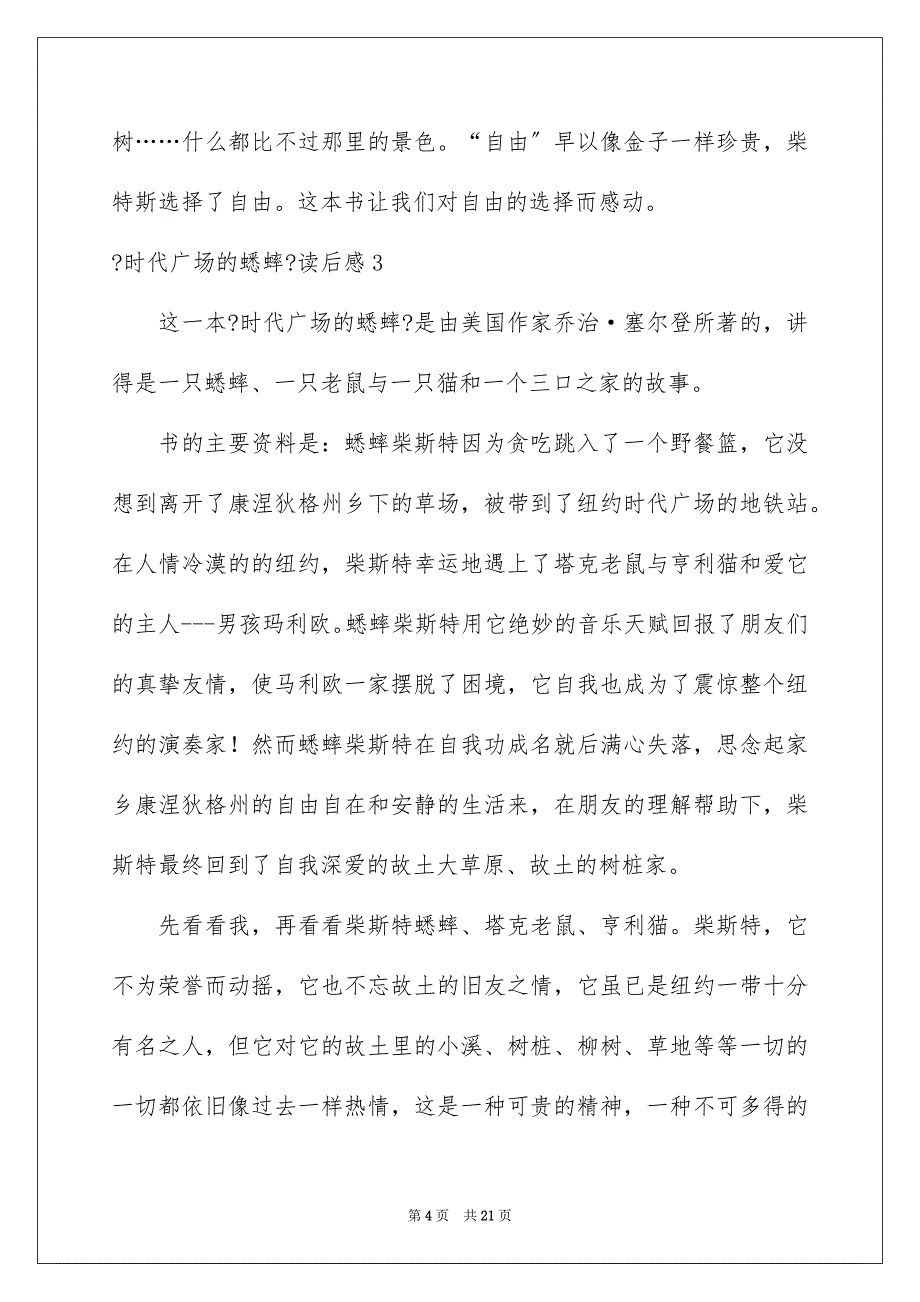 树……什么都比不过那里的景色。“自由〞早以像金子一样珍贵，柴
特斯选择了自由。这本书让我们对自由的选择而感动。
?时代广场的蟋蟀?读后感3
这一本?时代广场的蟋蟀?是由美国作家乔治·塞尔登所著的，讲
得是一只蟋蟀、一只老鼠与一只猫和一个三口之家的故事。
书的主要资料是：蟋蟀柴斯特因为贪吃跳入了一个野餐篮，它没
想到离开了康涅狄格州乡下的草场，被带到了纽约时代广场的地铁站。
在人情冷漠的的纽约，柴斯特幸运地遇上了塔克老鼠与亨利猫和爱它
的主人---男孩玛利欧。蟋蟀柴斯特用它绝妙的音乐天赋回报了朋友们
的真挚友情，使马利欧一家摆脱了困境，它自我也成为了震惊整个纽
约的演奏家！然而蟋蟀柴斯特在自我功成名就后满心失落，思念起家
乡康涅狄格州的自由自在和安静的生活来，在朋友的理解帮助下，柴
斯特最终回到了自我深爱的故土大草原、故土的树桩家。
先看看我，再看看柴斯特蟋蟀、塔克老鼠、亨利猫。柴斯特，它
不为荣誉而动摇，它也不忘故土的旧友之情，它虽已是纽约一带十分
有名之人，但它对它的故土里的小溪、树桩、柳树、草地等等一切的
一切都依旧像过去一样热情，这是一种可贵的精神，一种不可多得的
第 4 页 共 21 页